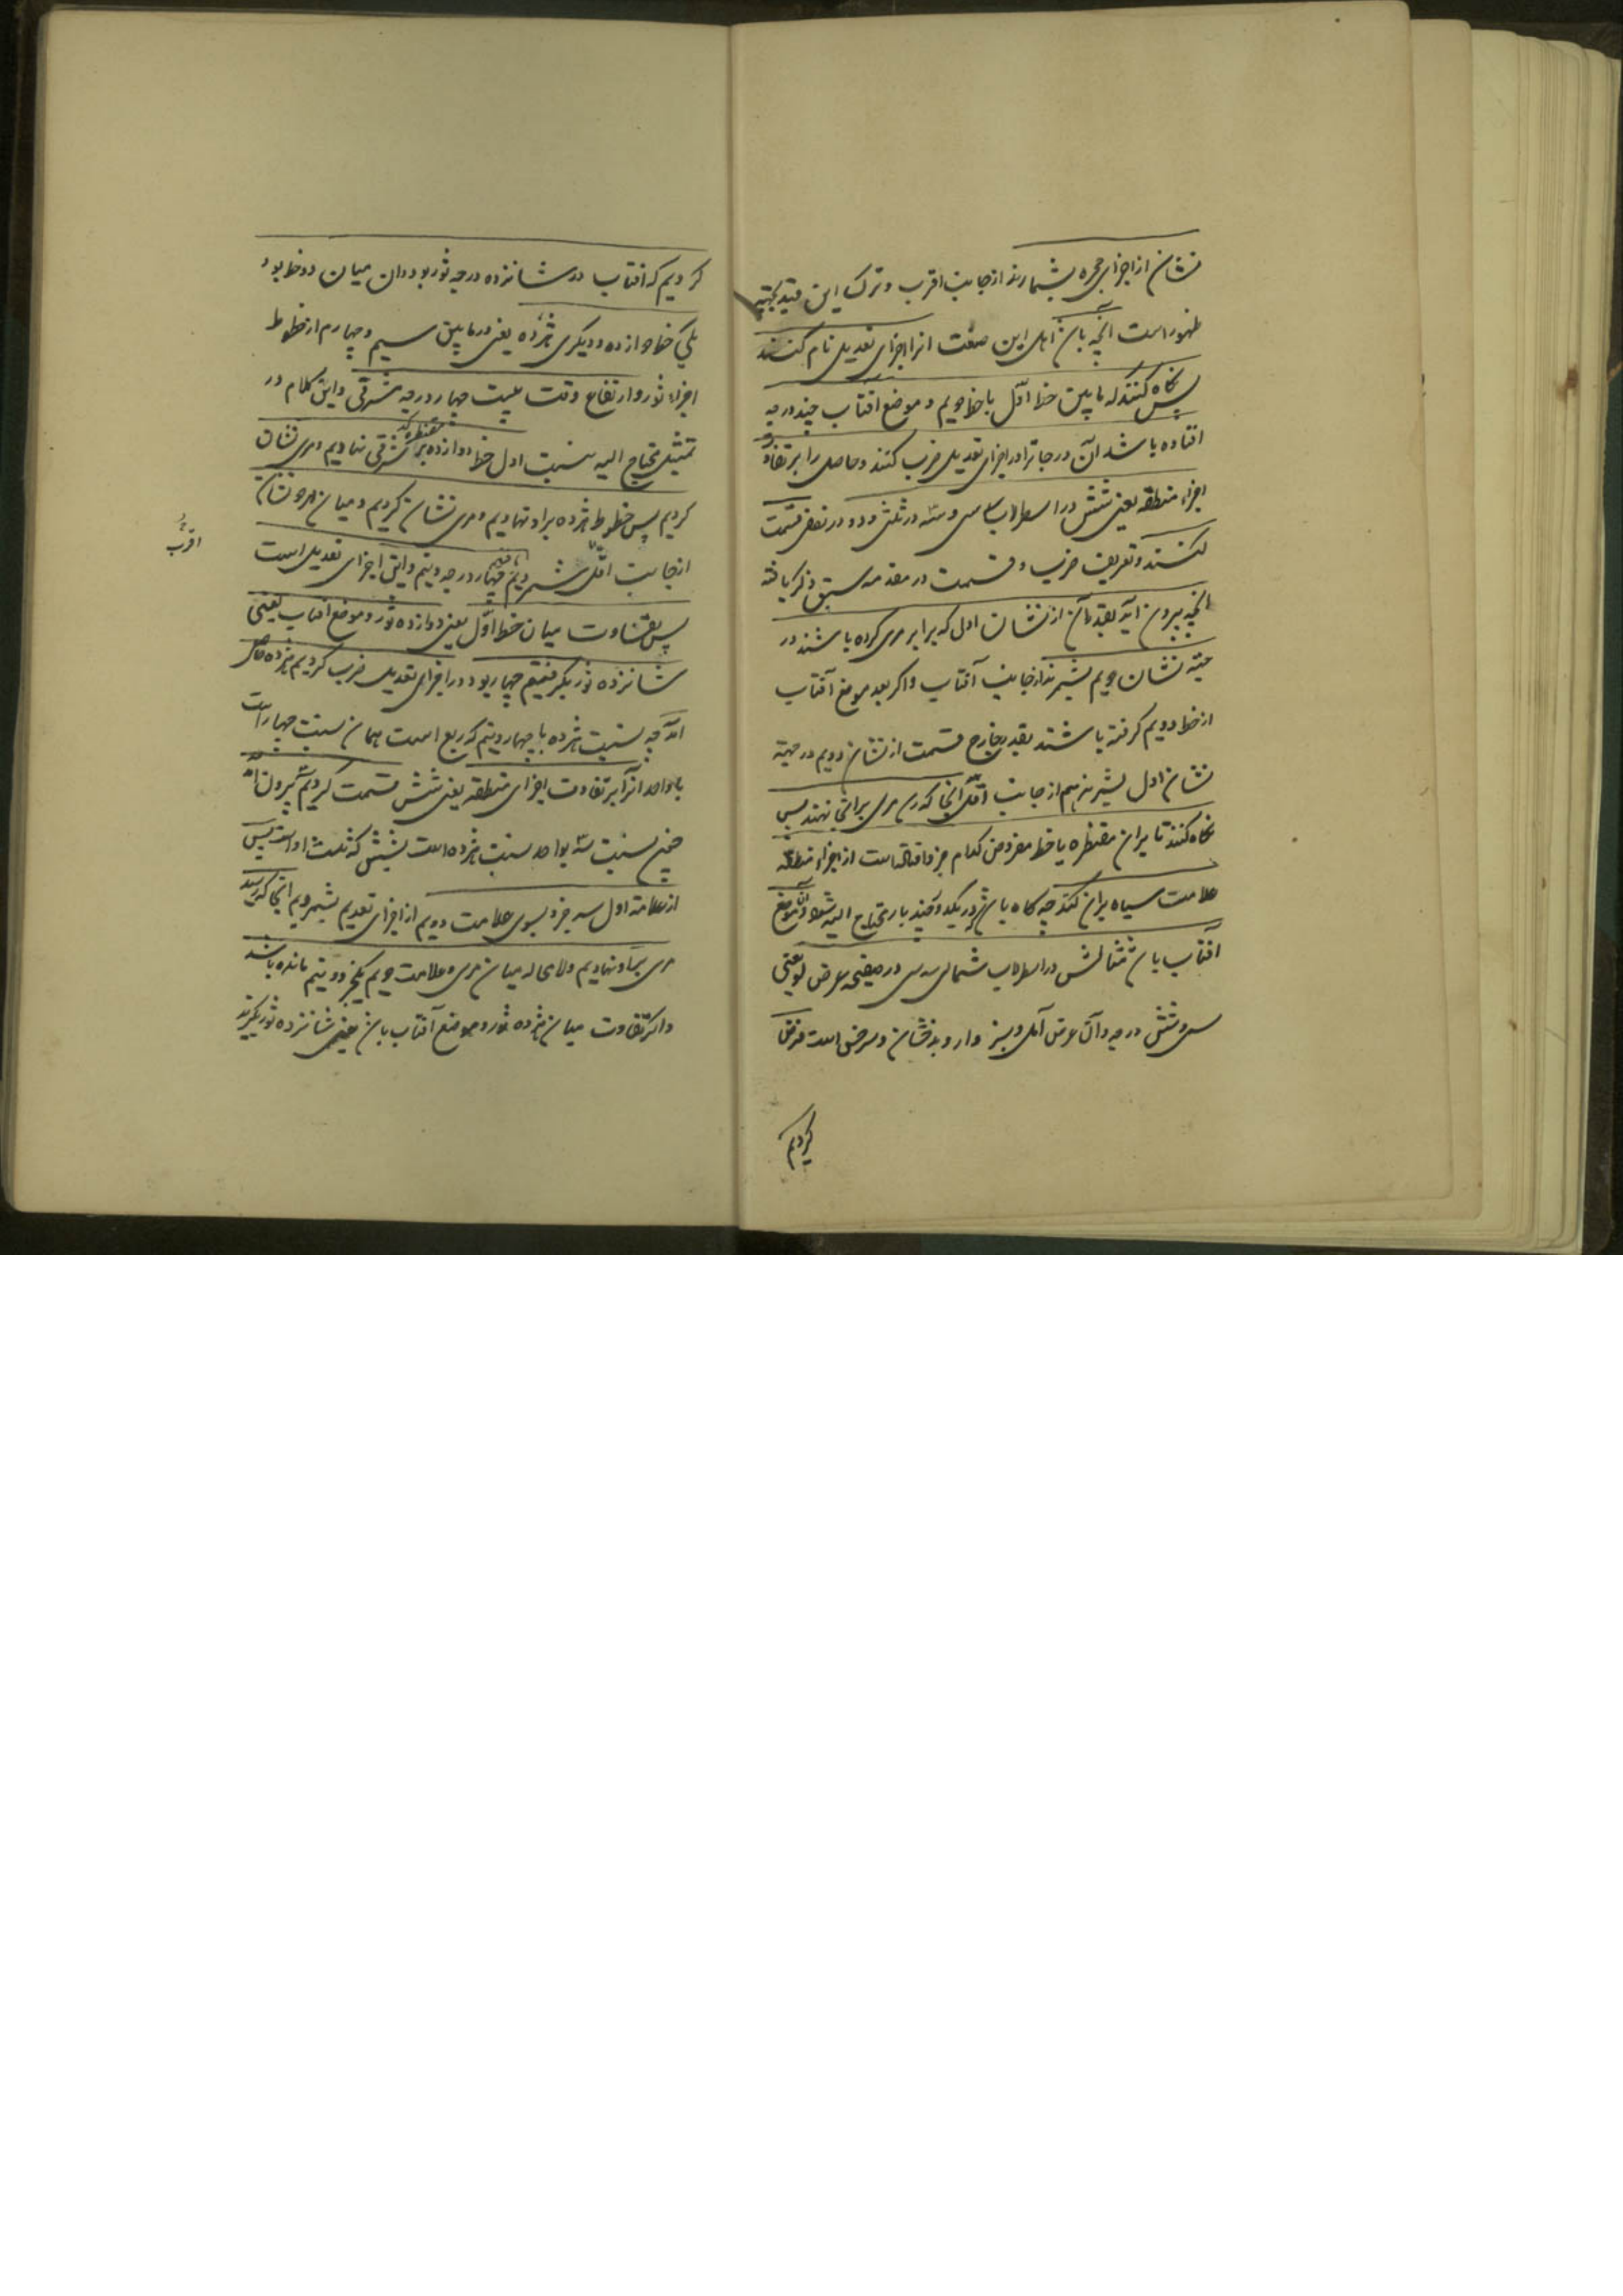 نشان از اجزای حجره بشمارند از جانب اقرب و ترک این قید بجهة
ظهور است آنچه باشد اهل این صنعت انرا اجزای تعدیل نام کنند
پس نگاه کنند که مابین خط اول یا خط دویم و موضع افتاب چند درجه
افتاده باشد آن درجات را در اجزای تعدیل ضرب کنند و حاصل را بر تفاوت
اجزاء منطقه یعنی شش در اسطرلاب سدسی و سه در ثلثی و دو در نصفی قسمت
کنند و تعریف ضرب و قسمت در مقدمه سبق ذکر یافته
آنچه بیرون آید بقدر آن از نشان اول که برابر مری کرده باشند در
جهة نشان دویم بشمرند از جانب آفتاب و اگر بعد موضع آفتاب
از خط دویم گرفته باشند بقدر خارج قسمت از نشان دویم در جهة
نشان اول بشمرند هم از جانب اقل آنجا که رسد مری بر آنجا نهند پس
نگاه کنند تا بر آن مقنطره یا خط مفروض کدام جزو افتاده است از اجزاء منطقه
علامت سیاه بر آن کنند چه گاه باشد که در یکدو چند بار محتاج الیه شود و آن موضع
آفتاب باشد مثالش در اسطرلاب شمالی سدسی در صفیحه عرض لو یعنی
سی و شش درجه و آن عرض آمل و سبزوار و بدخشان و سرخس است فرض
کردیم
کردیم که افتاب در شانزده درجه ثور بود و ان میان دو خط بود
یکی خط دوازده و دیگری هژده یعنی در مابین سیم و چهارم از خطوط
اجزاء ثور و ارتفاع وقت بیست چهار درجه شرقی و این کلام در
تمثیل محتاج الیه نیست اول خط دوازده بر مقنطره کد شرقی نهادیم و مری نشان
کردیم پس خطوط هژده بر او نهادیم و مری نشان کردیم و میان هر دو نشان
از جانب اقل شمردیم چهار درجه و نیم و این اجزای تعدیل است
اقرب
پس تفاوت میان خط اول یعنی دوازده ثور و موضع افتاب یعنی
شانزده ثور بگرفتیم چهار بود در اجزای تعدیل ضرب کردیم هژده حاصل
آمد چه نسبت هژده با چهار و نیم که ربع است همان نسبت چهار است
با واحد انرا بر تفاوت اجزای منطقه یعنی شش قسمت کردیم سه بیرون آمد
چون نسبت سه بواحد نسبت هژده است بشش که ثلث او است پس
از علامة اول سه جزو بسوی علامت دویم از اجزای تعدیم بشمردیم آنجا که رسید
مری بر او نهادیم ولامحاله میان مری و علامت دویم یکجزو و نیم مانده باشد
و اگر تفاوت میان هژده ثور و موضع آفتاب باشد یعنی شانزده ثور بگیرند